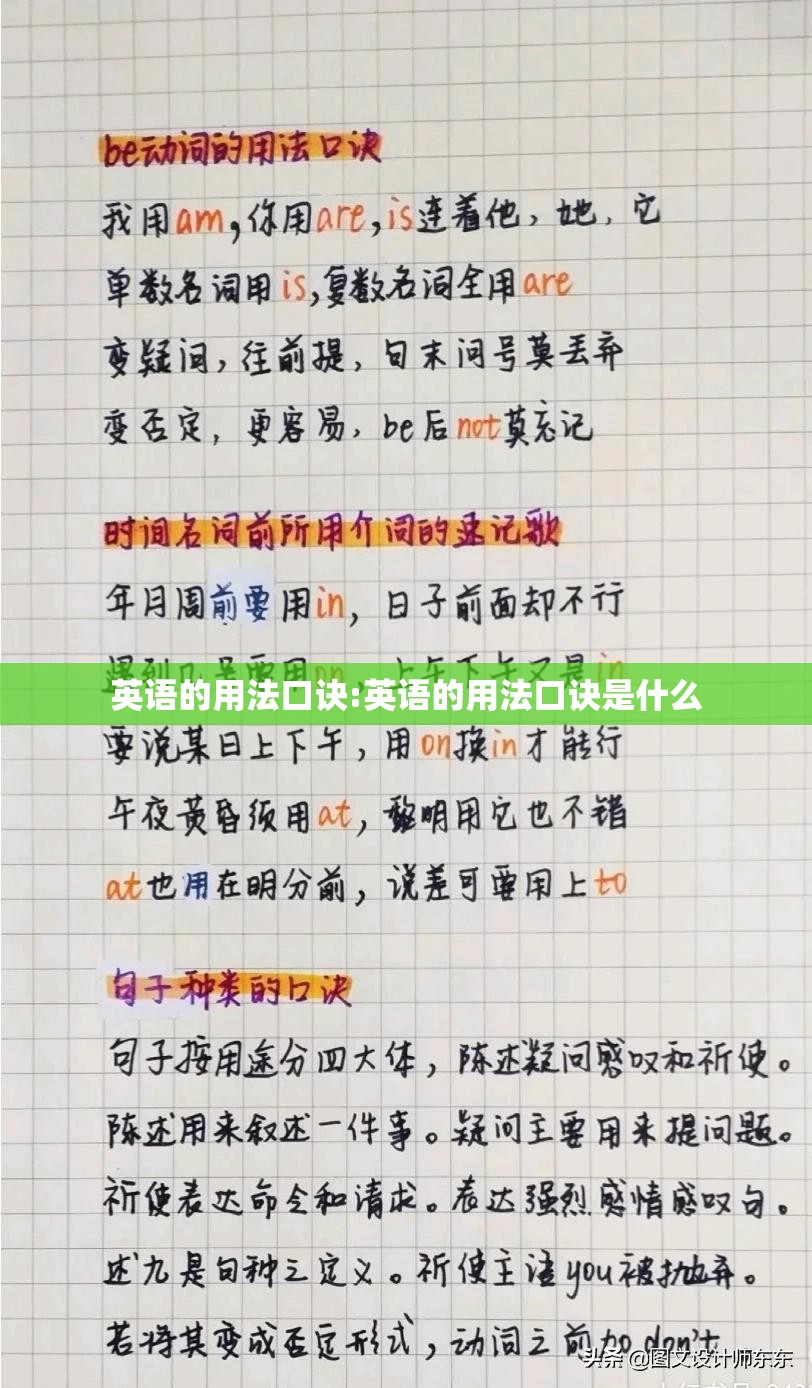 be动词的用法口诀
我用am,你用are,is连着他，她，它
单数名词用is,复数名词全用are
变疑问，往前提，句末问号莫丢弃
变否定，更容易，be后not莫忘记
时间名词前所用介词的速记歌
年月周前要用in，日子前面却不行
遇到几号要用on，上午下午又是in
英语的用法口诀:英语的用法口诀是什么
要说某日上下午，用on换in才能行
午夜黄昏须用at，黎明用它也不错
at也用在明分前，说差可要用上to
句子种类的口诀
句子按用途分四大体，陈述疑问感叹和祈使。
陈述用来叙述一件事。疑问主要用来提问题。
祈使表达命令和请求。表达强烈感情感叹句。
述九是句种之定义。祈使主语you被抛弃。
若将其变成否定形式，动词之前加don't
头条 @图文设计师东东